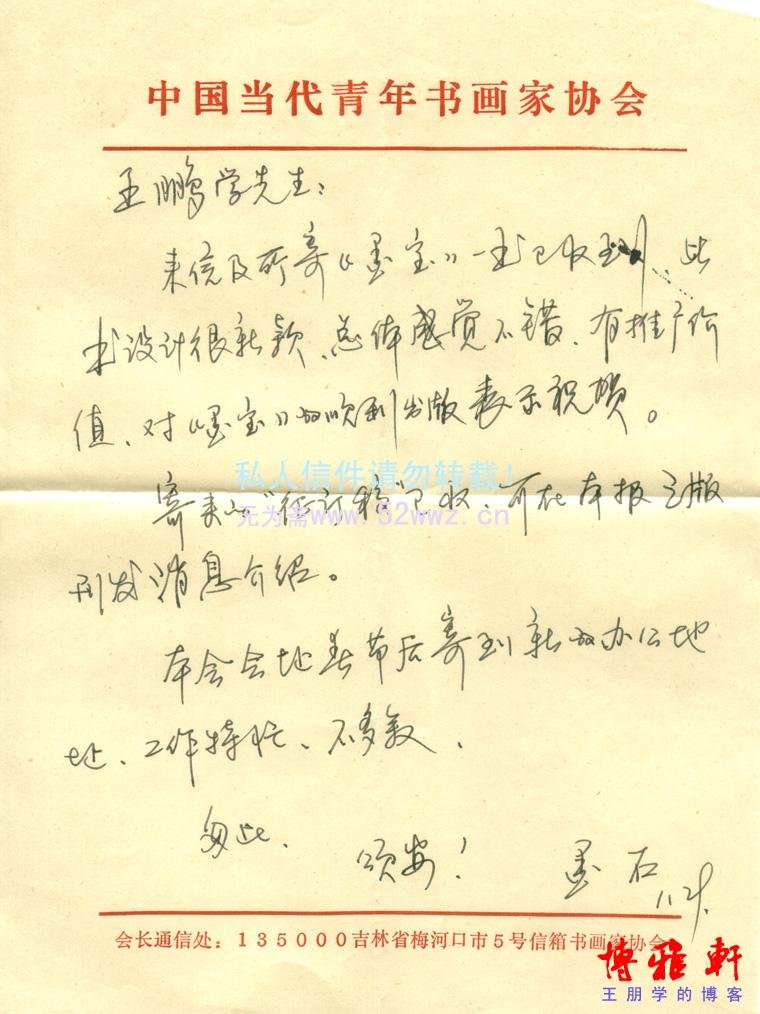 中国当代青年书画家协会
王鹏学先生：
来信及所寄《墨宝》一书已收到、此
书设计很新颖、总体感觉不错、有推广价
值、对《墨宝》的顺利出版表示祝贺。
私人信件请勿转载！
寄来的“征订稿”已收、可在本报三版
无为斋www.52wwz.cn
刊发消息介绍。
本会会址春节后寄到新的办公地
址、工作特忙、不多叙、
匆此、
颂安！
墨石
会长通信处：135000吉林省梅河口市5号信箱书画家协会
博雅轩
王朋学的博客